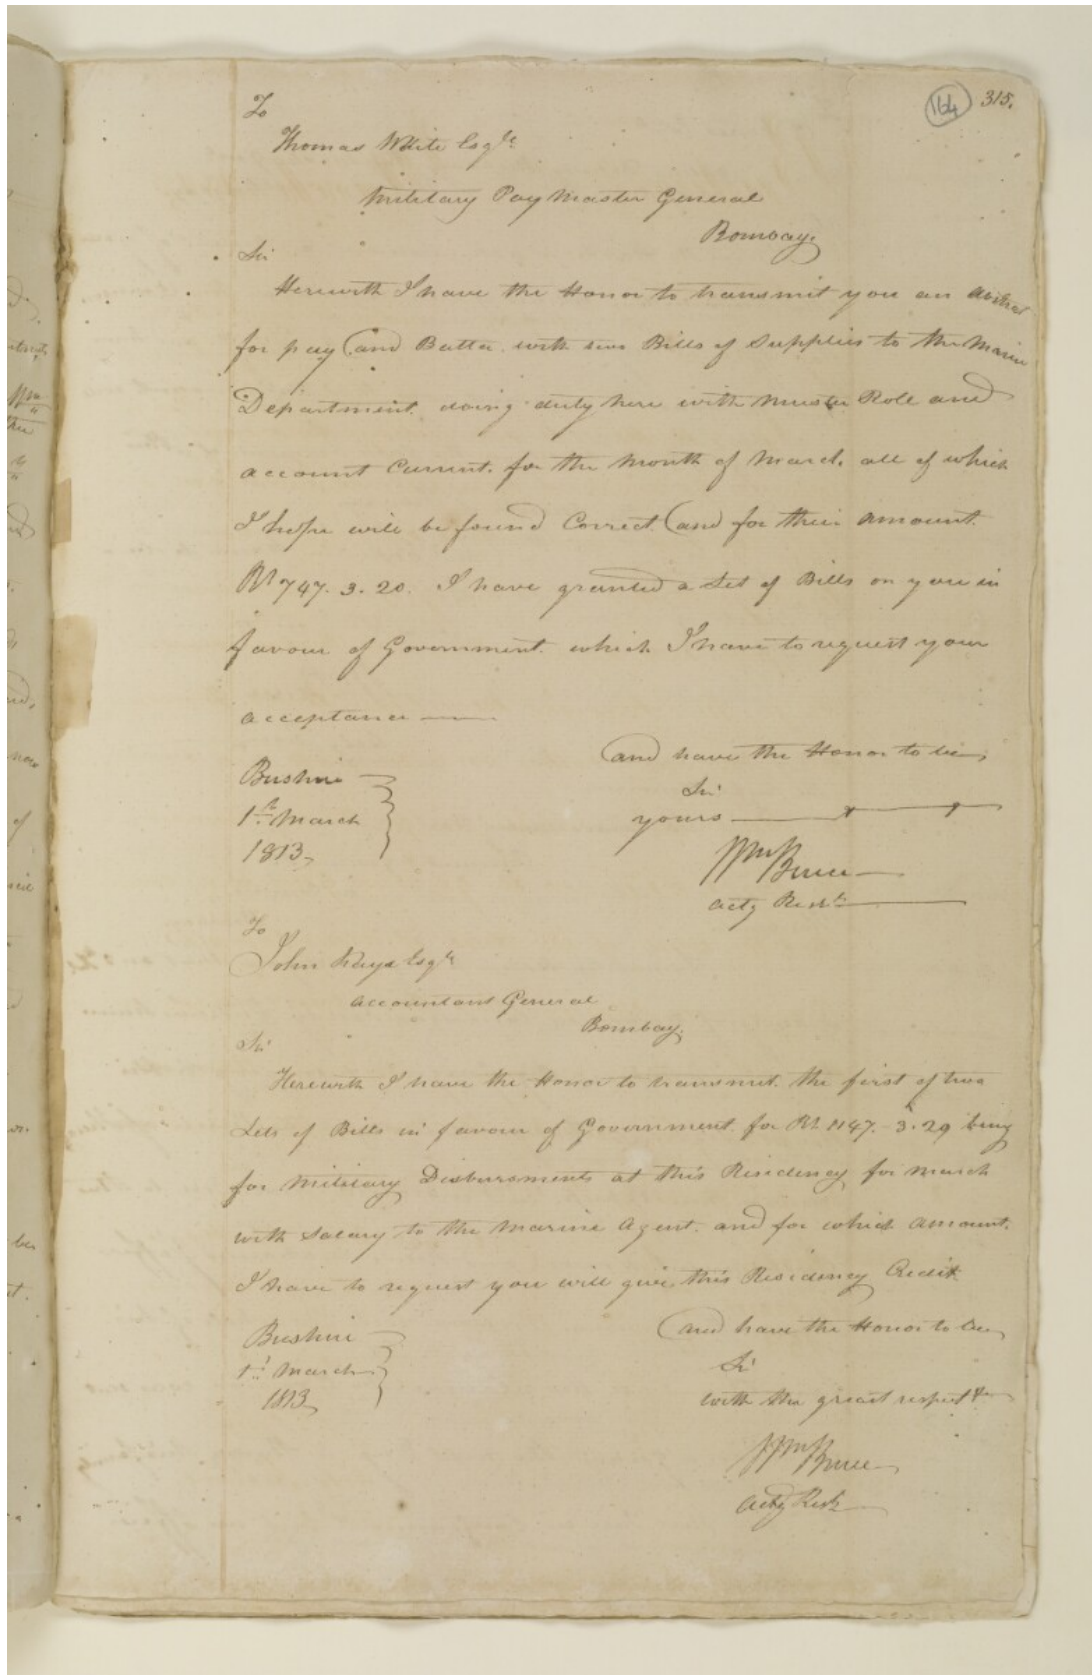 164 315.
To
Thomas White Esqre
Military Pay Master General
Bombay.
Sir
Herewith I have the Honor to transmit you an
for pay and Batta with two Bills of Supplies to the Marine
Department doing duty here with Muster Role and
account Current for the Month of March all of which
I hope will be found Correct and for their amount
Rs 747. 3. 20. I have granted a Set of Bills on you in
favour of Government which I have to request your
acceptance
and have the Honor to be
Bushire
Sir
1st March
yours
1813
Wm Bruce
Actg Resdt
To
John Esqr
Accountant General
Bombay.
Sir
Herewith I have the Honor to transmit the first of two
Sets of Bills in favour of Government for Rs 1147. 3. 29 being
for Military Disbursments at this Residency for March
with Salary to the Marine Agent. and for which amount.
I have to request you will give this Residency Credit
and have the Honor to be
Bushire
Sir
1st March
with the great respect &c
1813
Wm Bruce
Actg Resdt